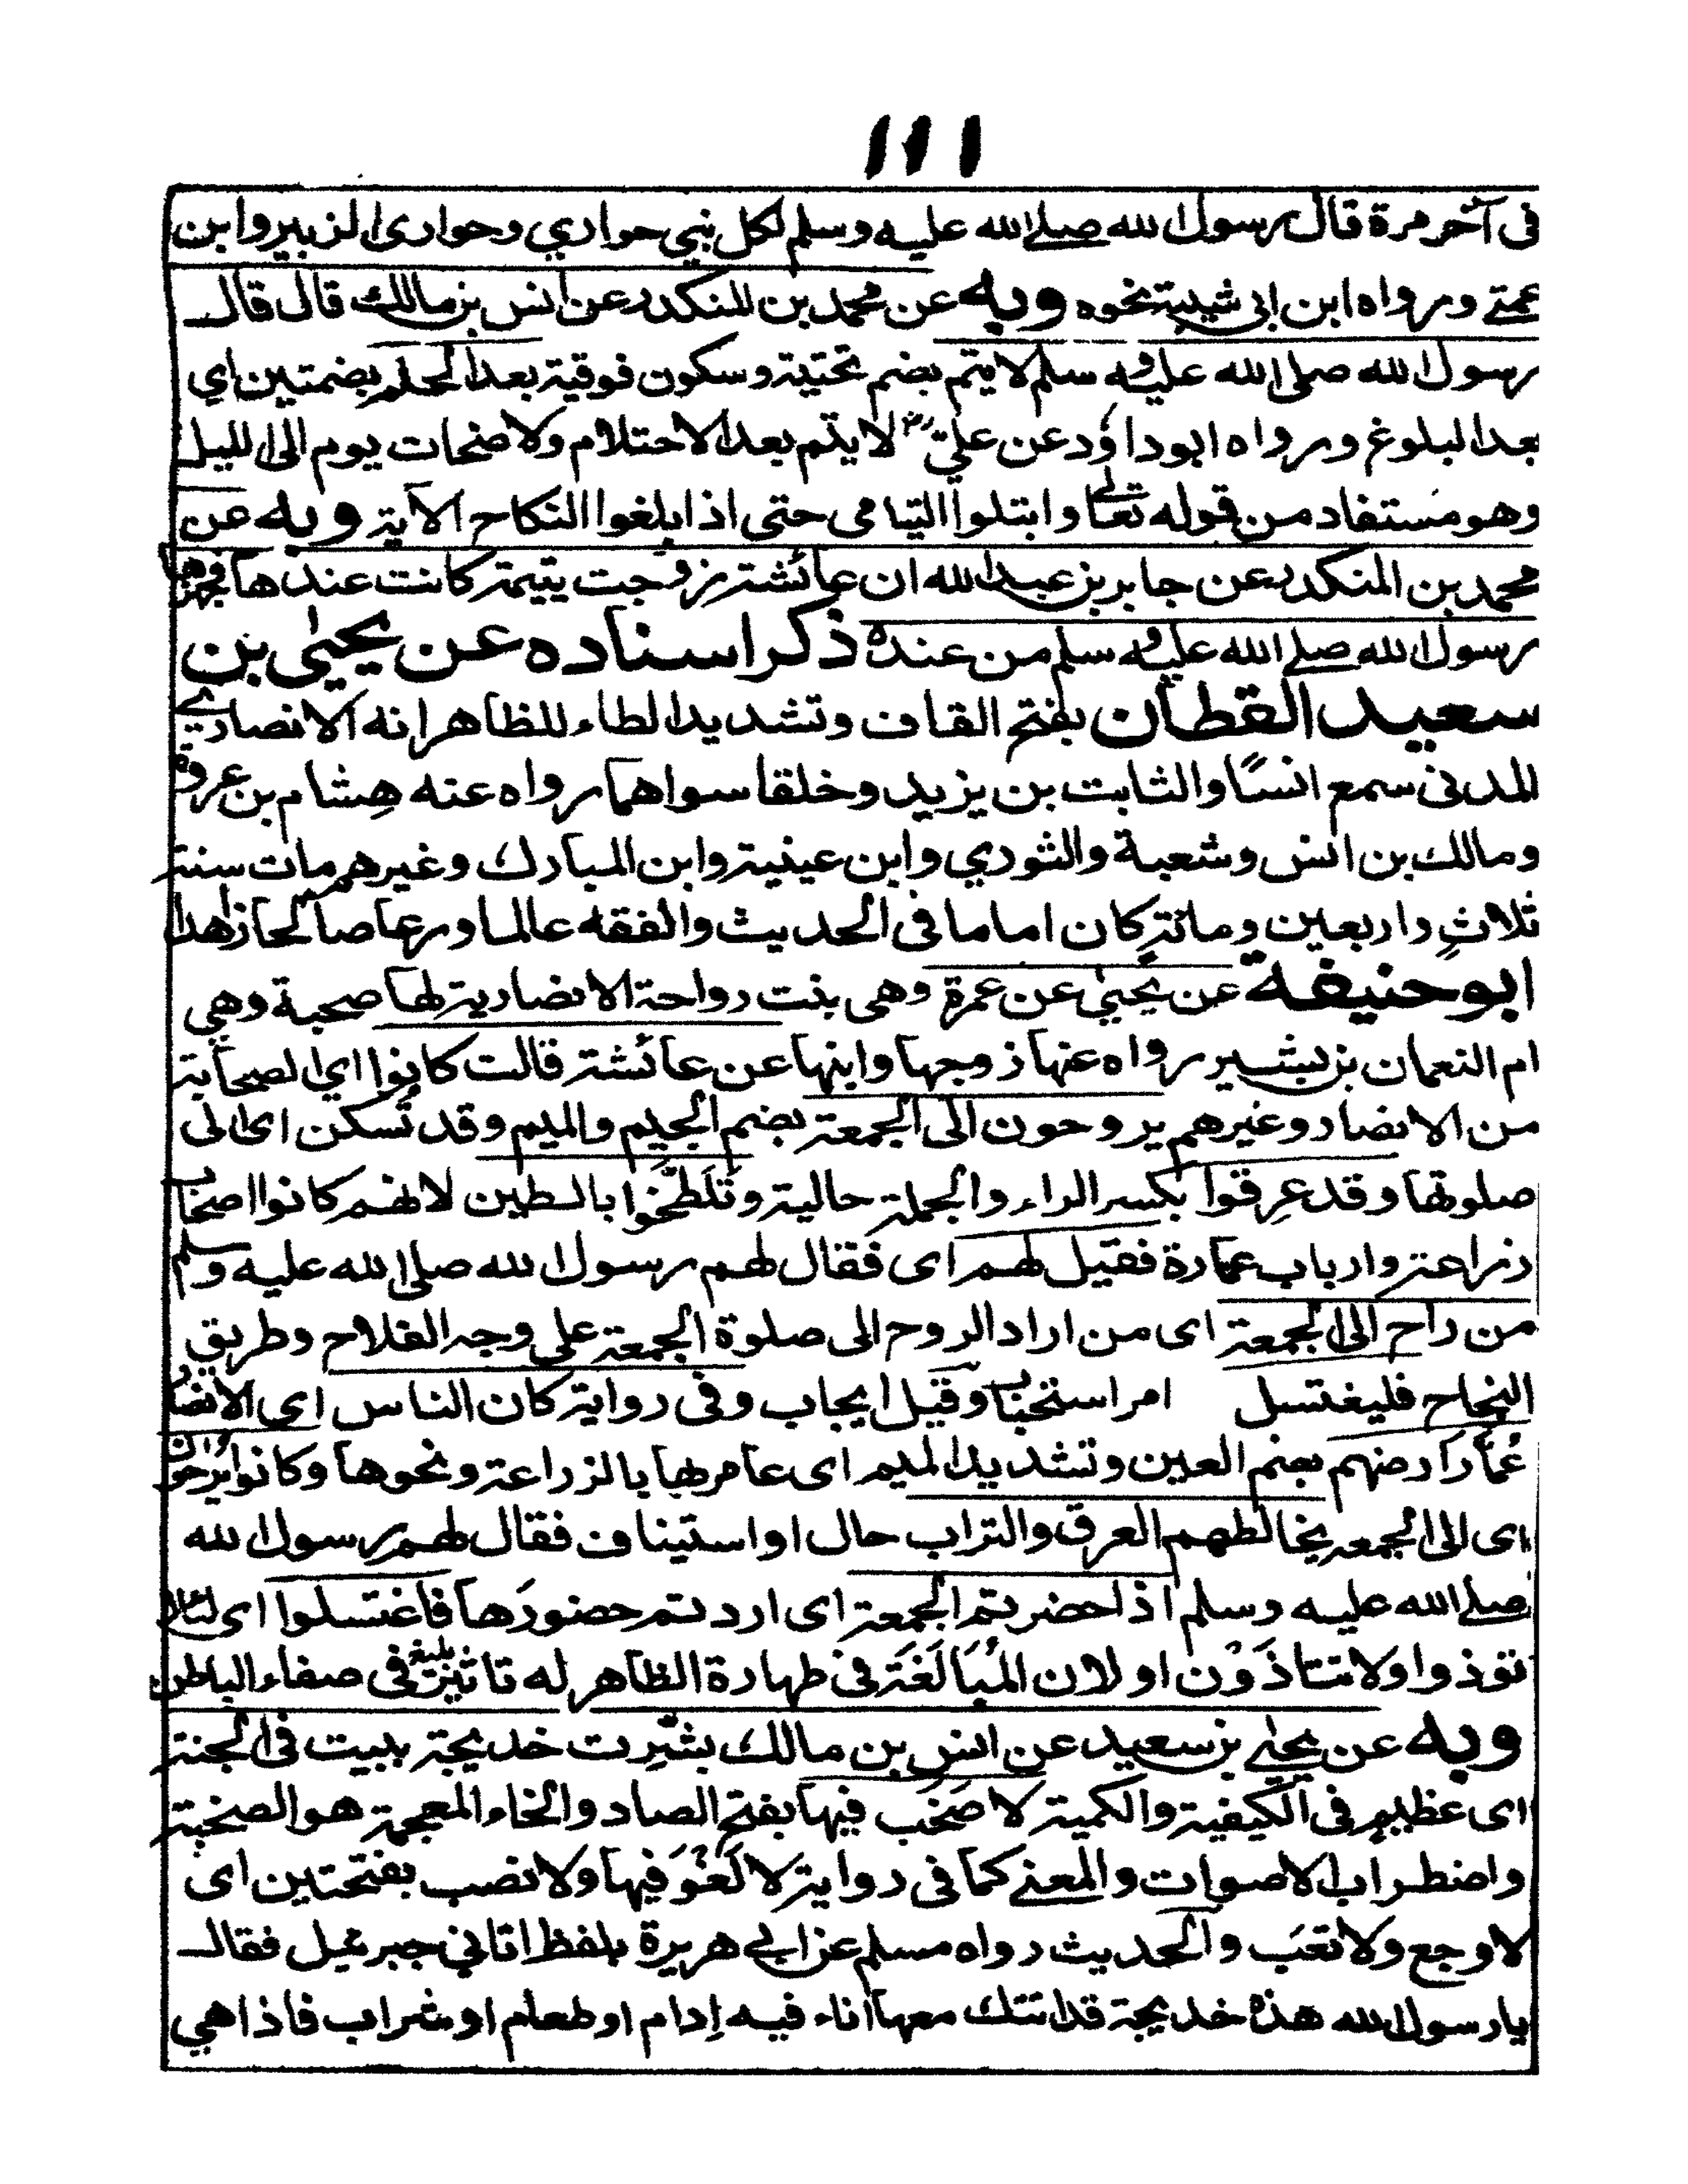 ١١١
فى آخر مرة قال رسول الله صلے الله عليه وسلم لكل نبي حواري وحوارى الزبير وابن
عمتے ورواه ابن ابى شيبة نحوه وبه عن محمد بن المنكدر عن انس بن مالك قال قال
رسول الله صلى الله عليه وسلم لا يتم بضم تحتية وسكون فوقية بعد الحلم بضمتين اي
بعد البلوغ ورواه ابو داؤد عن علي رض لا يتم بعد الاحتلام ولا ضمات يوم الى الليل
وهو مستفاد من قوله تعالے وابتلوا اليتامى حتى اذا بلغوا النكاح الآية وبه عن
محمد بن المنكدر عن جابر بن عبد الله ان عائشة زوجت يتيمة كانت عندها فجهزها
رسول الله صلے الله عليه وسلم من عنده ذكر اسناده عن يحيىٰ بن
سعيد القطان بفتح القاف وتشديد الطاء للظاهر انه الانصاري
المدنى سمع انسًا والثابت بن يزيد وخلقا سواهما رواه عنه هِشام بن عروة
ومالك بن انس وشعبة والثوري وابن عيينة وابن المبارك وغيرهم مات سنة
ثلاثٍ واربعين ومائة كان اماما فى الحديث والفقه عالما ورعا صالحا زاهدا
ابو حنيفة عن يحيىٰ عن عمرة وهى بنت رواحة الانصارية لها صحبة وهي
ام النعمان بن بشير رواه عنها زوجها وابنها عن عائشة قالت كانوا اي الصحابة
من الانصار وغيرهم يروحون الى الجمعة بضم الجيم والميم وقد تُسكن اى الى
صلوتها وقد عِرقوا بكسر الراء والجملة حالية وتَلَطَّخُوا بالطين لانهم كانوا اصحاب
زراعة وارباب عمارة فقيل لهم اى فقال لهم رسول الله صلى الله عليه وسلم
من راح الى الجمعة اى من اراد الروح الى صلوة الجمعة على وجه الفلاح وطريق
النجاح فليغتسل امر استحباب وقيل ايجاب وفى رواية كان الناس اى الانصار
عُمَّارَ ارضهم بضم العين وتشديد الميم اى عامريها بالزراعة ونحوها وكانوا يروحون
اى الى الجمعة يخالطهم العرق والتراب حال او استيناف فقال لهم رسول الله
صلے الله عليه وسلم اذا حضرتم الجمعة اى اردتم حضورَها فاغتسلوا اى لئلا
توذوا ولا تتاذَوْن او لان المُبَالَغَة فى طهارة الظاهر له تاثير بليغ فى صفاء الباطن
وبه عن يحيىٰ بن سعيد عن انس بن مالك بشّرت خديجة ببيت فى الجنة
اى عظيم فى الكيفية والكمية لا صَخَب فيها بفتح الصاد والخاء المعجمة هو الصخبة
واضطراب الاصوات والمعنے كما فى رواية لا لَغْوَ فيها ولا نصب بفتحتين اى
لا وجع ولا تعَب والحديث رواه مسلم عن ابى هريرة بلفظ اتاني جبرئيل فقال
يا رسول الله هذه خديجة قد اتتك معها اناء فيه اِدام او طعام او شراب فاذا هي